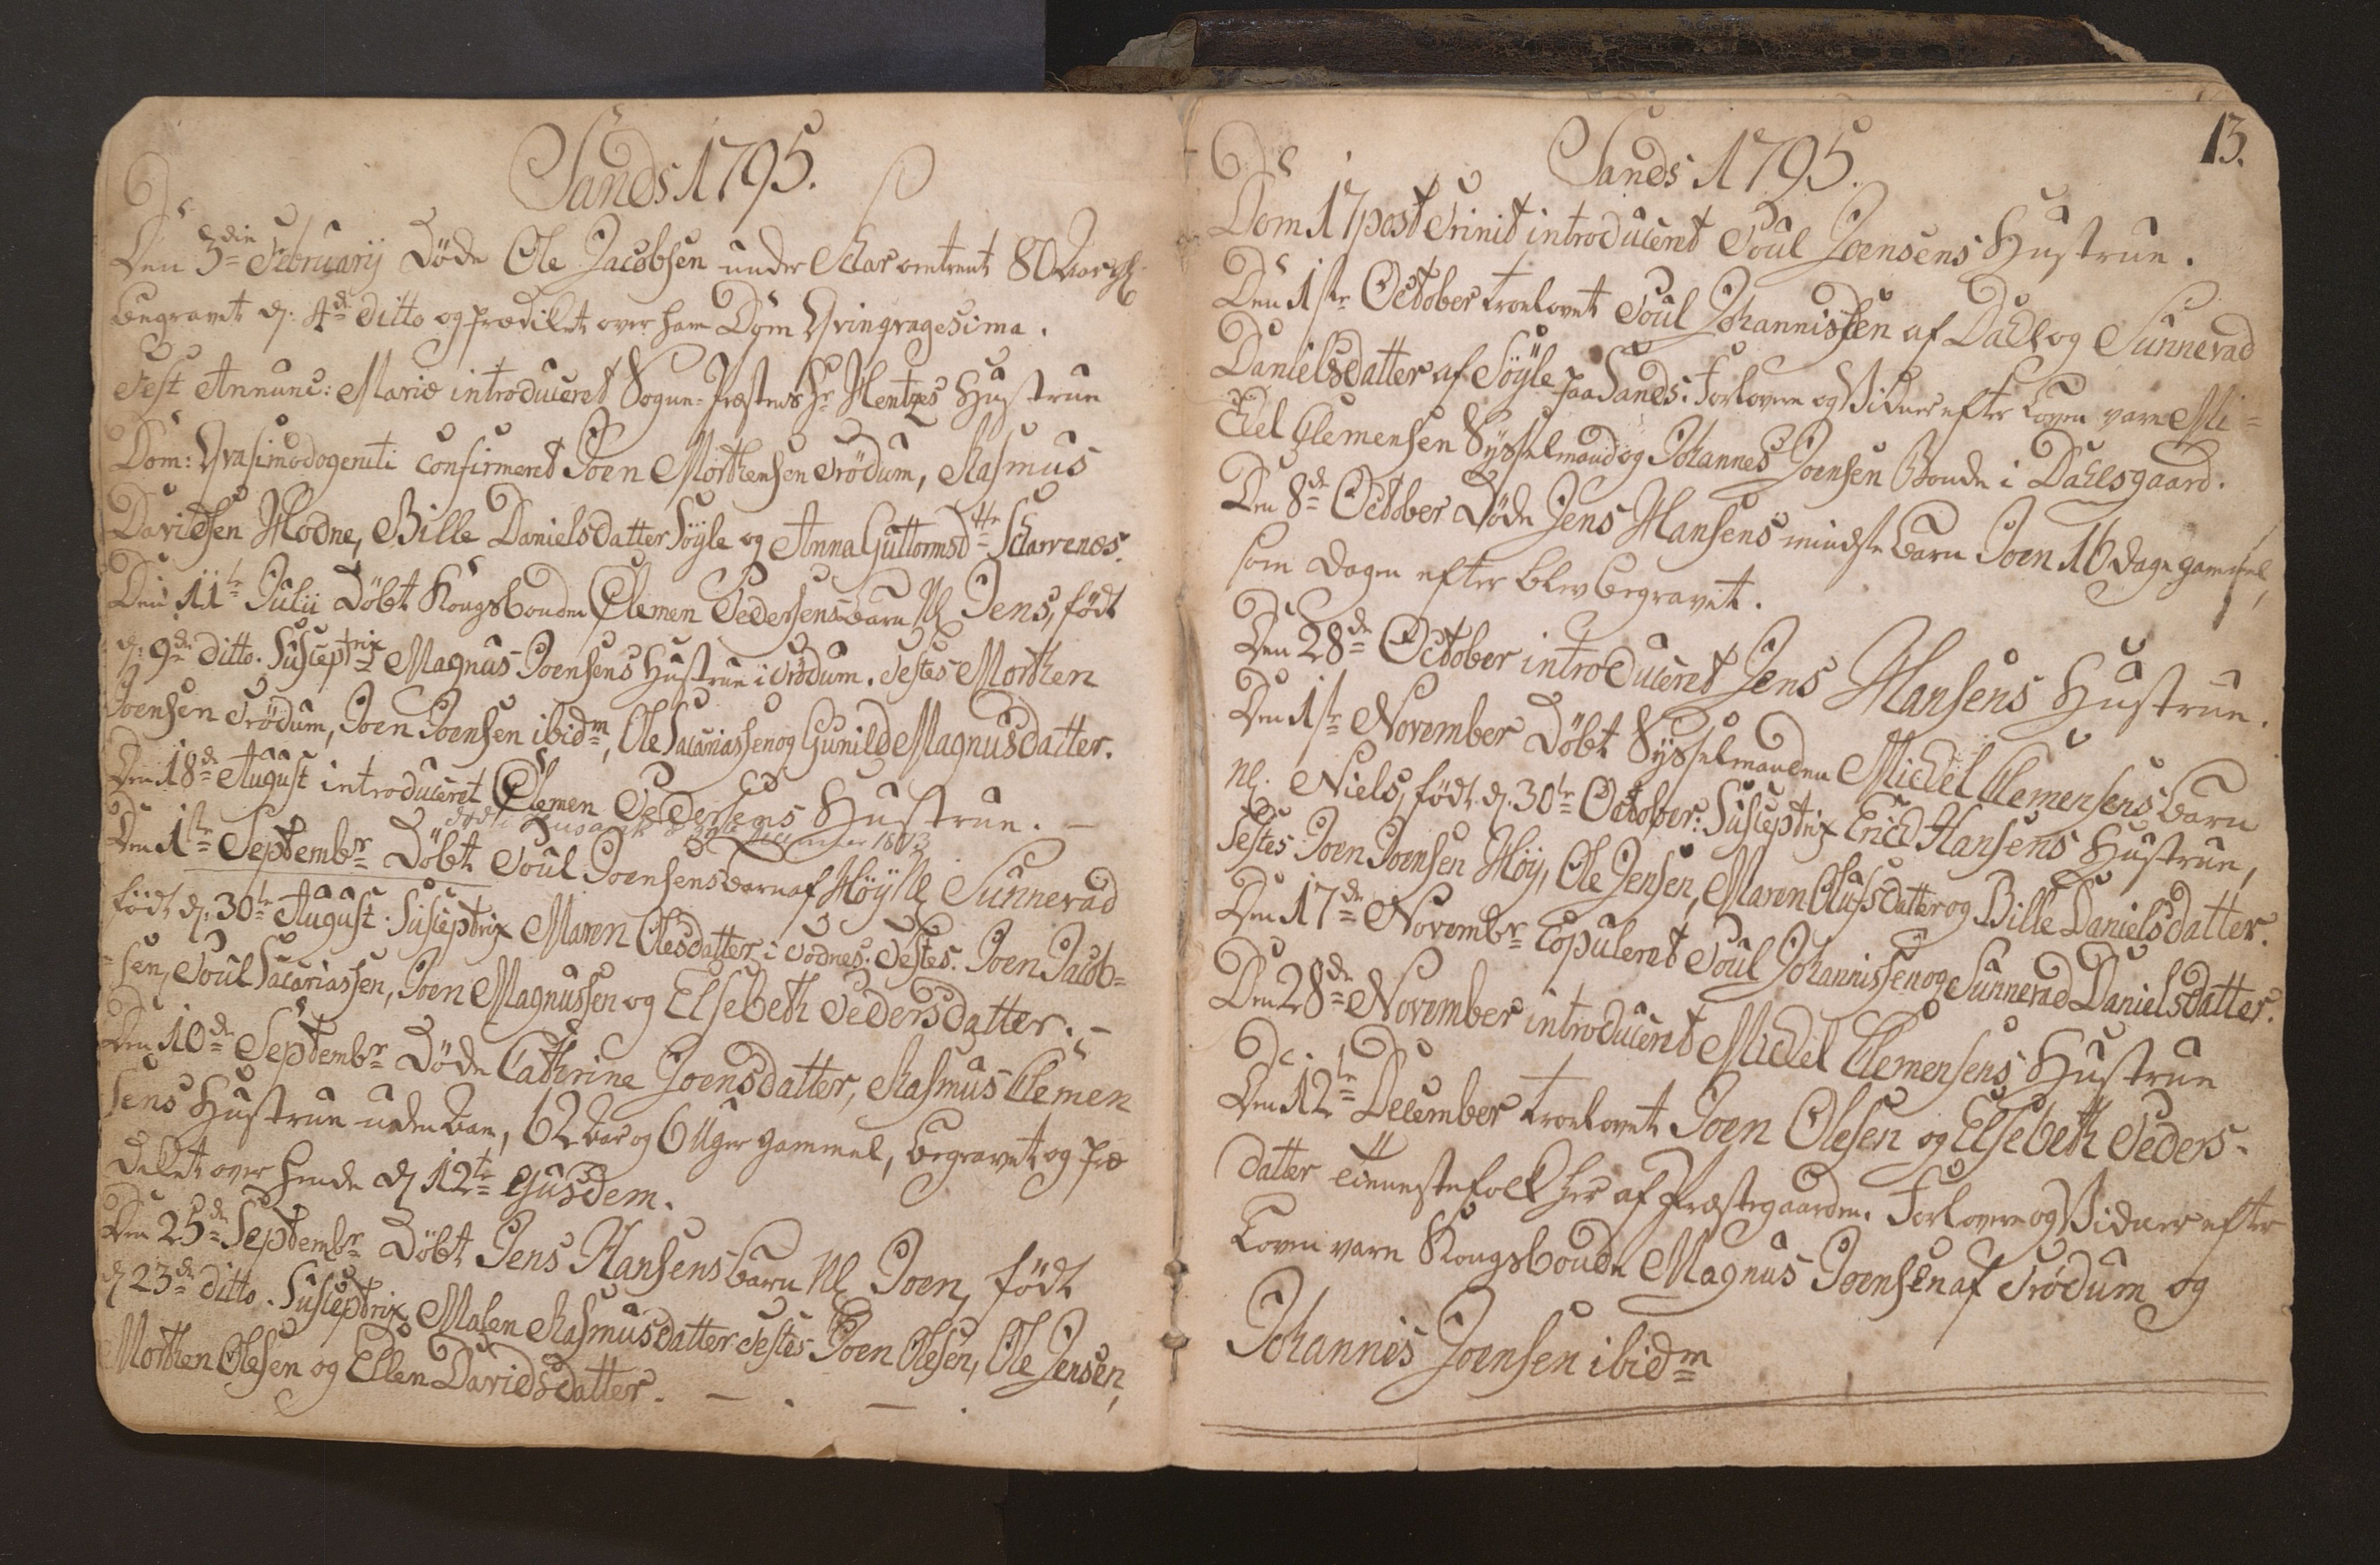 Sands 1795.
Den 3die Februarij Døde Ole Jacobsen under Skar omtrent 80 Aar gl
begravet d: 4de ditto og prædiket over ham Dom Qvinqvagesima.
Fest Annunc: Mariæ introduceret Sogne-Præstens Hr Hentzes Hustrue
Dom: Qvasimodogeniti confirmeret Joen Morthensen Trödum, Rasmus
Davidsen Modne, Bille Danielsdatter Söyle og Anna Guttormsdttr Scharvenæs.
Den 11te Julii Döbt Kongsbonden Clemen Pedersens barn Nl Jens, födt
d: 9de ditto. Susceptrix Magnus Joensens Hustrue i Trödum. Testes Morthen
Joensen Trödum, Joen Joensen ibidm, Ole Sacariassen og Gunild Magnusdatter.
Den 18de August introduceret Clemen Pedersens Hustrue. -
död i Husavik d 1873
Den 1te Septembr Döbt Poul Joensens barn af Höÿ Nl Sunnevad
födt d: 30te August. Susceptrix Maren Olesdatter i Todnes. Testes. Joen Jacob=
=sen, Poul Sacariassen, Joen Magnussen og Elsebeth Pedersdatter. -
Den 10de Septembr Döde Cathrine Joensdatter, Rasmus Clemen
sens Hustrue uden , 62 Aar og 6 Uger gammel, begravet og Præ
diket over hende d 12te Ejusdem.
Den 25de Septembr Döbt Jens Hansens barn Nl Joen, födt
d 23de ditto. Susceptrix Malen Rasmusdatter Testes Joen Olesen, Ole Jensen,
Morthen Olesen og Ellen Davidsdatter. - . - .
13.
Sands 1795.
Dom 17 post Trinit introduceret Poul Joensens Hustrue.
Den 1ste October trolovet Poul Johannissen af Dahl og Sunnevad
Danielsdatter af Söyle paa Sands. Forlovere og Vidner efter Loven vare Mi=
chel Clemensen Sysselmand og Johannes Joensen Bonde i Dahlsgaard.
Den 8de October Döde Jens Hansens mindste barn Joen 16 dage gammel,
som dagen efter blev begravet.
Den 28de October introduceret Jens Hansens Hustrue.
Den 1ste November Döbt Sysselmanden Michel Clemensens barn
Nl. Niels, födt d. 30te October: Susceptrix Erich Hansens Hustrue,
Testes Joen Joensen Höÿ, Ole Jensen, Maren Olufsdatter og Bille Danielsdatter.
Den 17de Novembr Copuleret Poul Johannissen og Sunnevad Danielsdatter.
Den 28de November introduceret Michel Clemensens Hustrue
Den 12te December trolovet Joen Olesen og Elsebeth Peders-
datter tiennestefolk her af Præstegaarden. Forlovere og Vidner efter
Loven vare Kongsbonde Magnus Joensen af Trödum og
Johannis Joensen ibidm